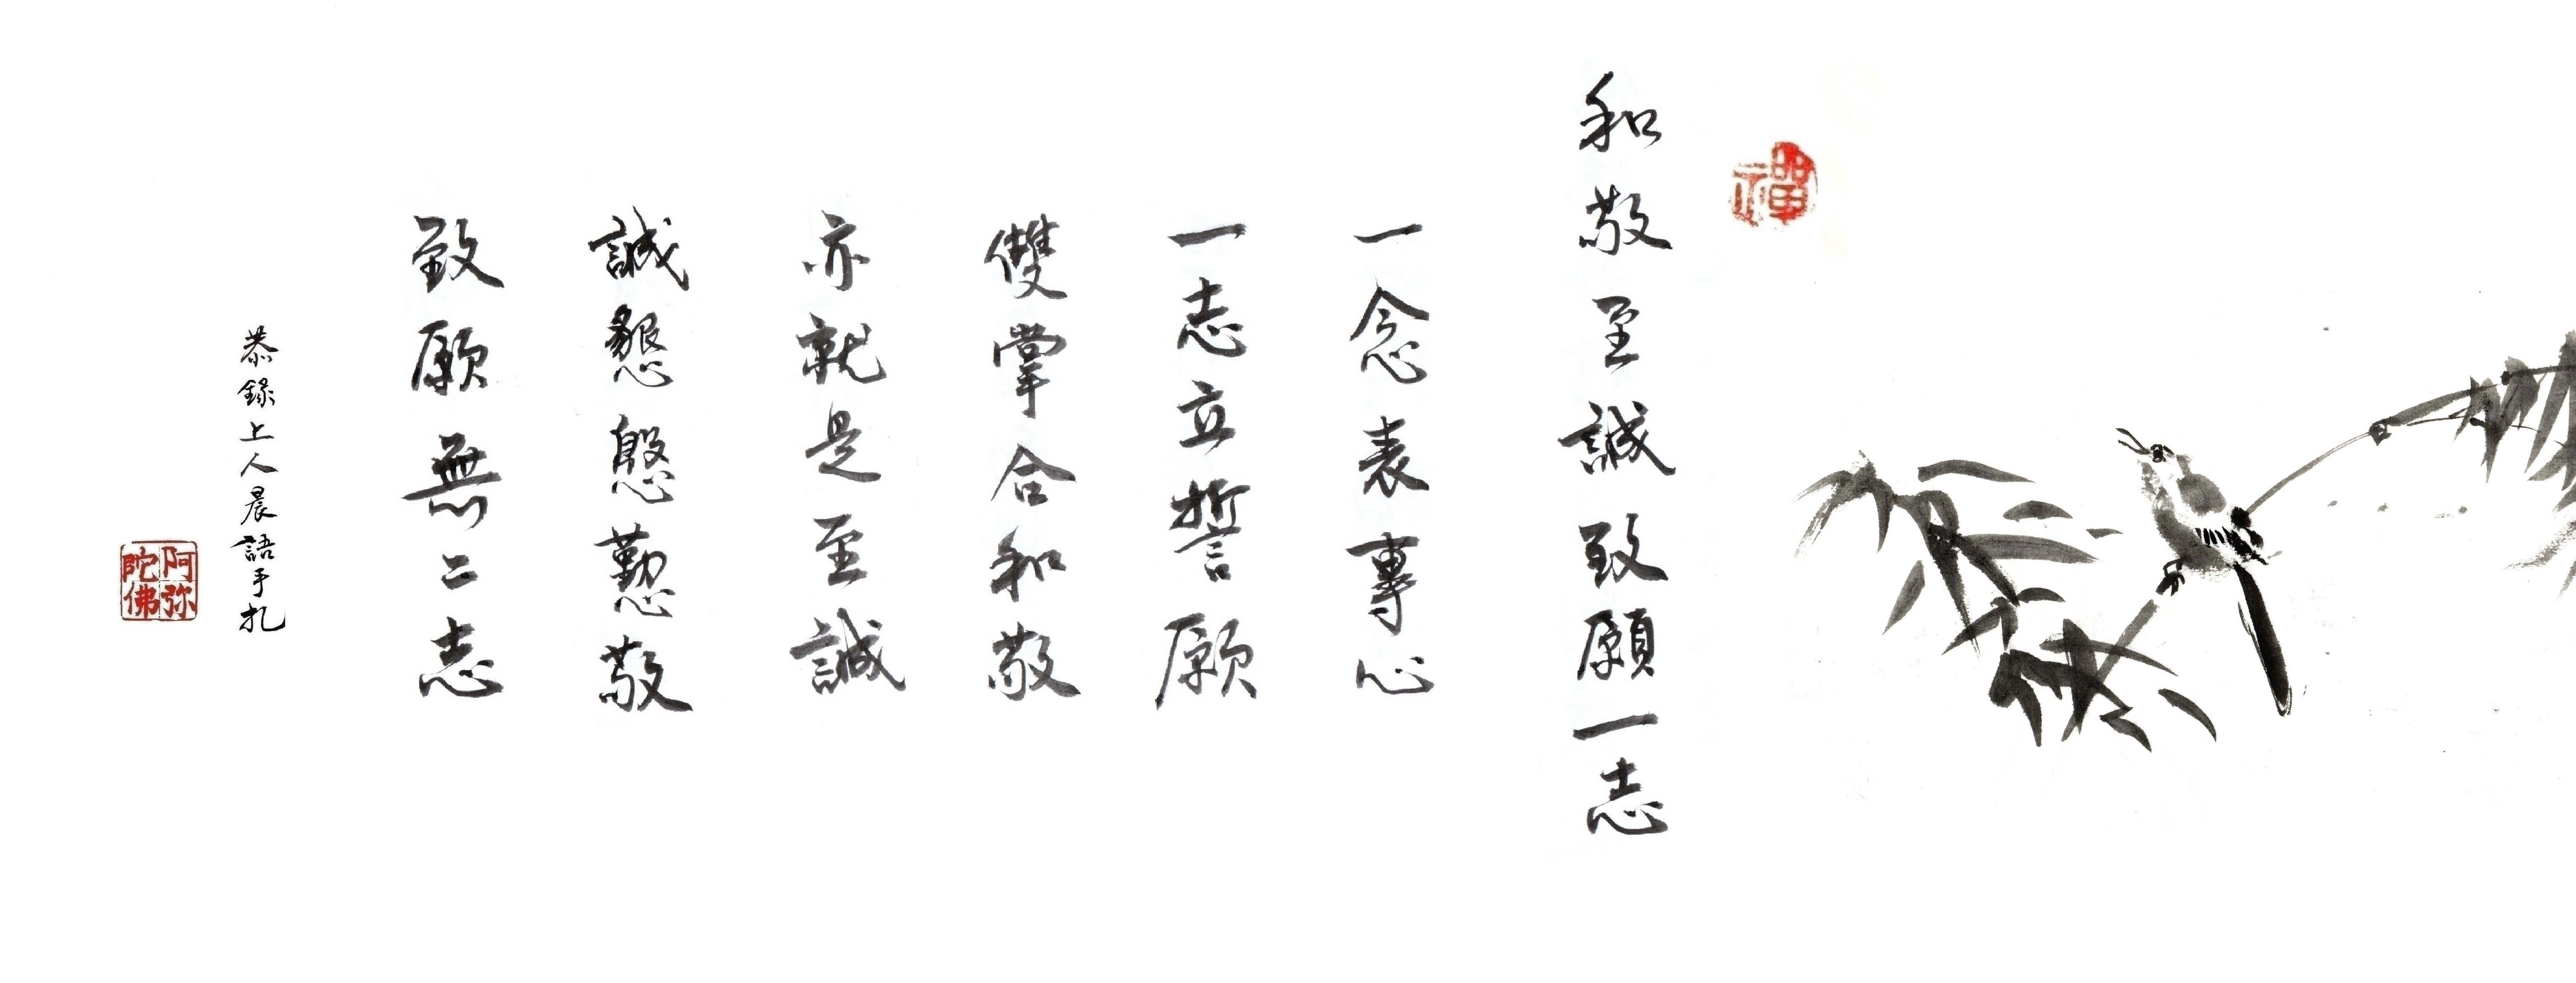 禪
和敬至誠致願一志
一念表專心
一志立誓願
雙掌合和敬
亦就是至誠
誠懇慇懃敬
致願無二志
恭錄上人晨語手扎
阿弥陀佛